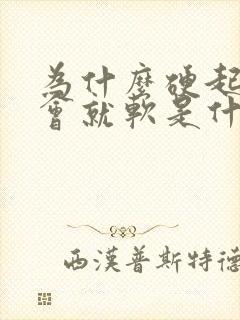 為什麼硬起
會就軟是什
西漢普斯特德